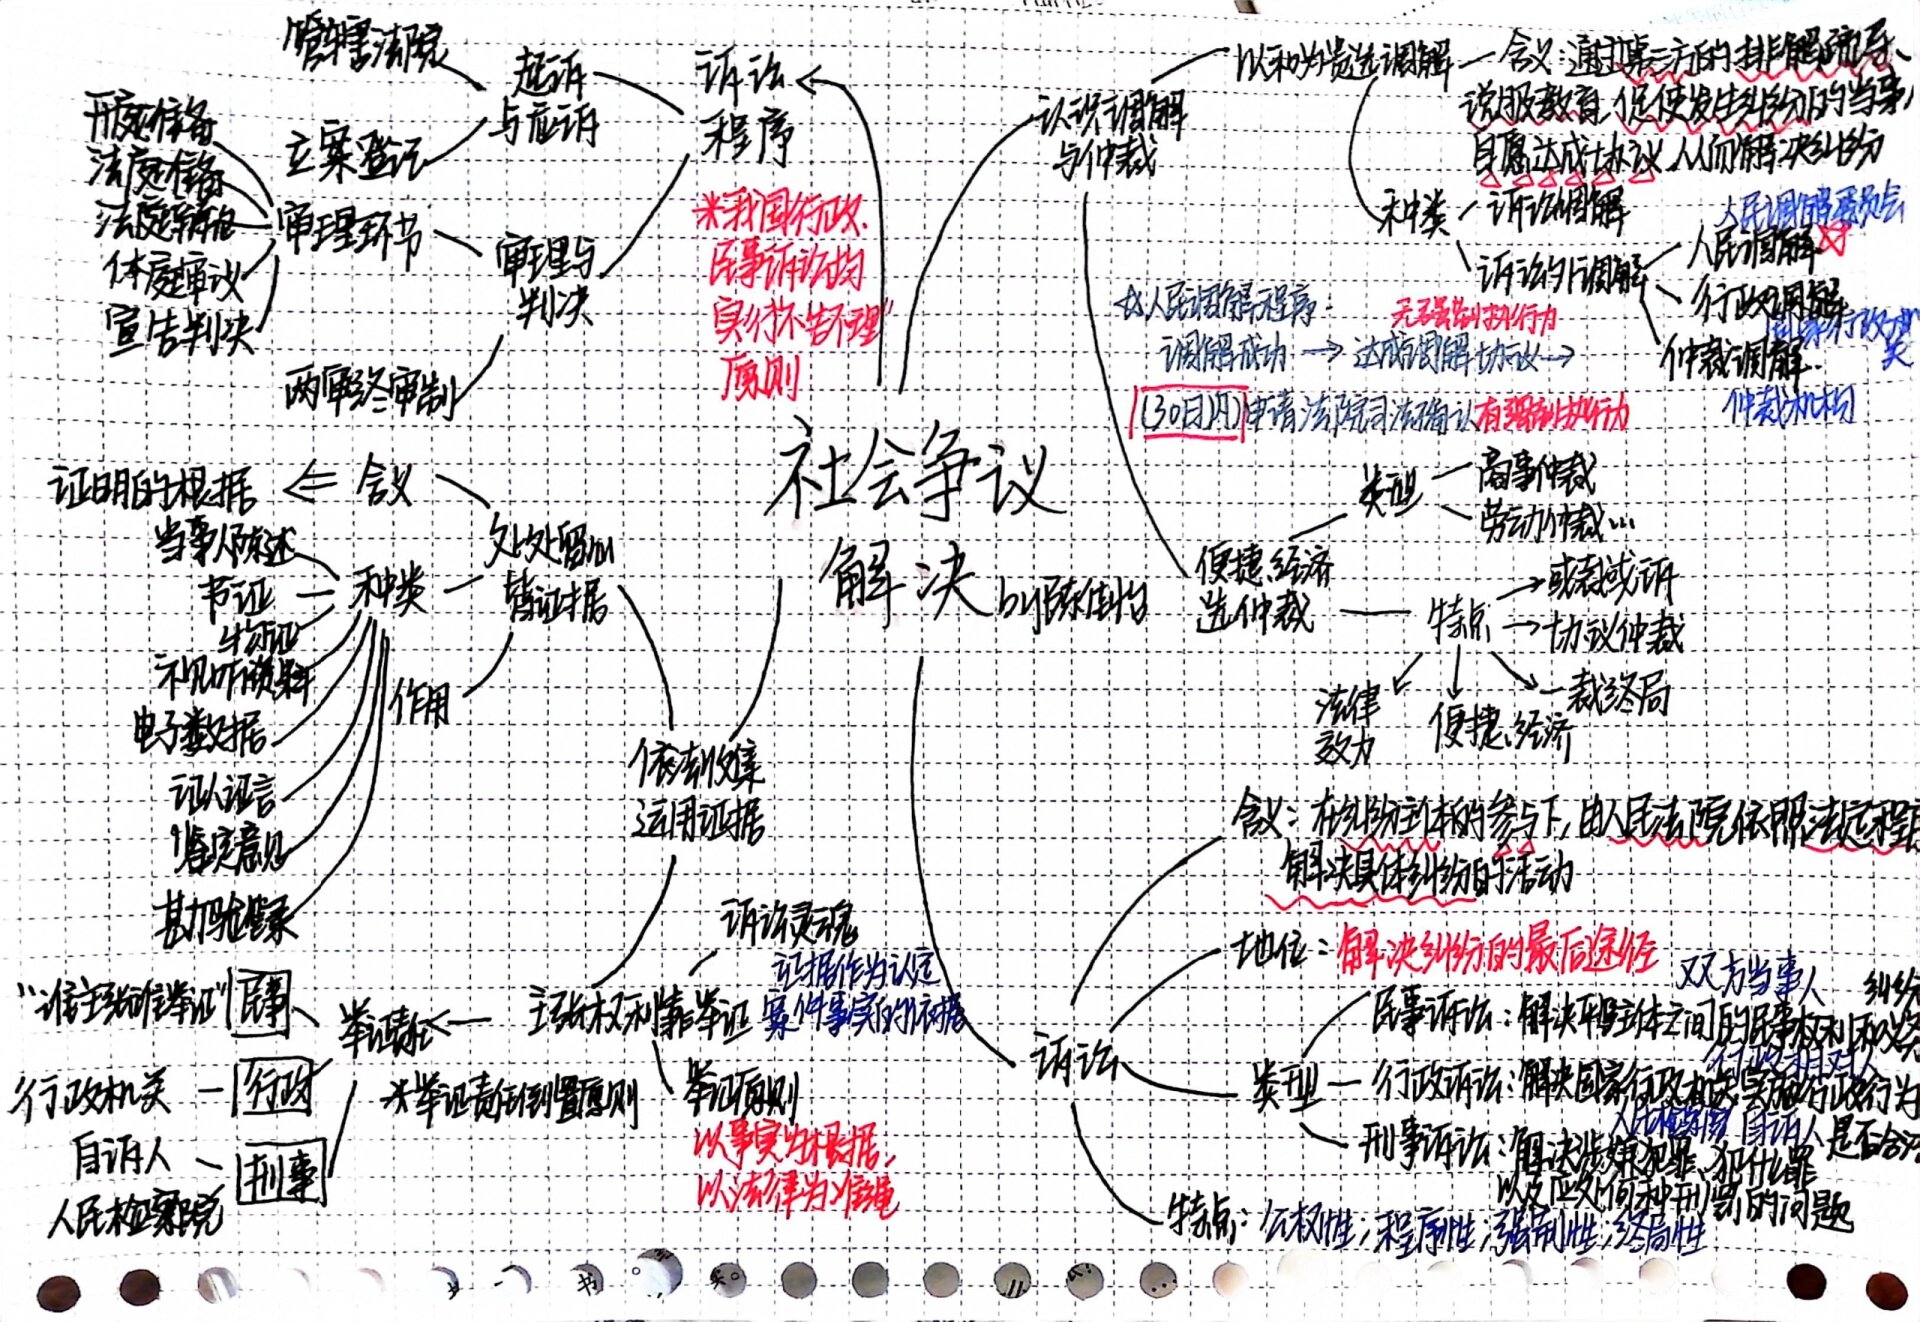 社会争议
解决
诉讼
程序
起诉
与应诉
管辖法院
立案登记
审理与
判决
审理环节
开庭准备
法庭准备
法庭辩论
体庭审议
宣告判决
两审终审制
*我国行政、
民事诉讼均
实行"不告不理"
原则
认识调解
与仲裁
以和为贵选调解
含义:通过第三方的排解疏导、
说服教育,促使发生纠纷的当事人
自愿达成协议,从而解决纠纷
种类
诉讼调解
诉讼外调解
人民调解委员会
人民调解
行政调解
仲裁调解
仲裁机构
☆人民调解程序:
无强制执行力
调解成功→达成调解协议→
(30日内)申请法院司法确认有强制执行力
便捷、经济
选仲裁
类型
商事仲裁
劳动仲裁…
特点
或裁或诉
协议仲裁
一裁终局
便捷、经济
法律
效力
诉讼
含义:在纠纷主体的参与下,由人民法院依照法定程序
解决具体纠纷的活动
地位:解决纠纷的最后途径
类型
双方当事人
民事诉讼:解决平等主体之间的民事权利和义务
纠纷
行政相对人
行政诉讼:解决国家行政机关实施行政行为
是否合法
人民检察院 自诉人
刑事诉讼:解决涉嫌犯罪、犯什么罪
以及应处何种刑罚的问题
特点:公权性;程序性;强制性;终局性
依法收集
运用证据
处处留心
皆证据
含义
证明的根据
种类
当事人陈述
书证
物证
视听资料
电子数据
证人证言
鉴定意见
勘验笔录
作用
主张权利靠举证
诉讼灵魂
证据作为认定
案件事实的依据
举证原则
以事实为根据,
以法律为准绳
举证责任
*举证责任倒置原则
民事
"谁主张谁举证"
行政
行政机关
刑事
自诉人
人民检察院